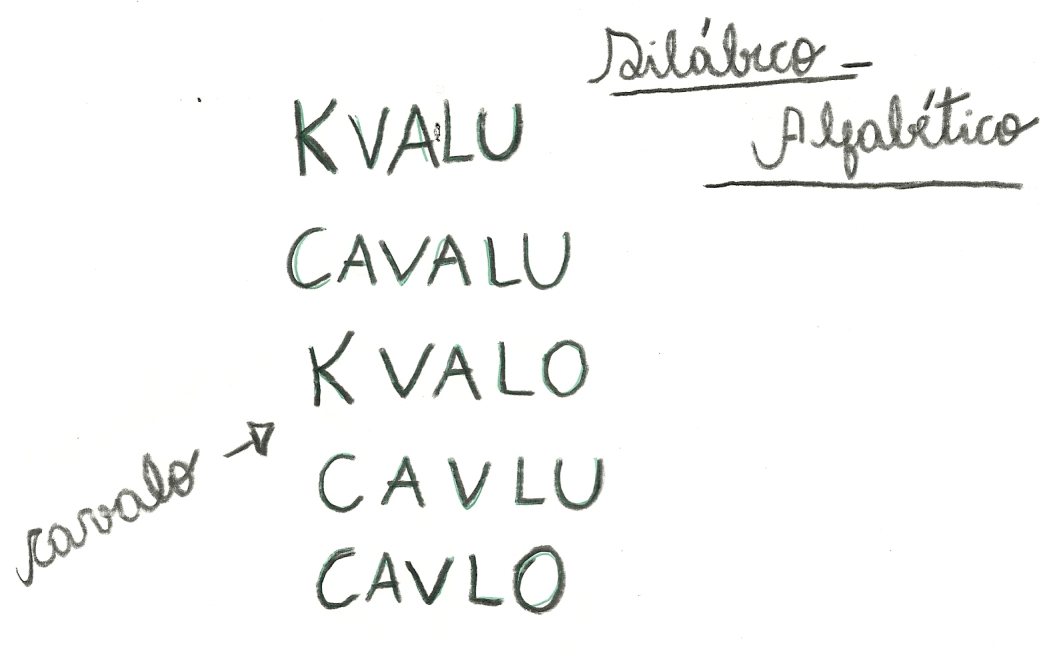 Silábico -
Alfabético
KVALU
CAVALU
KVALO
cavalo →
CAVLU
CAVLO